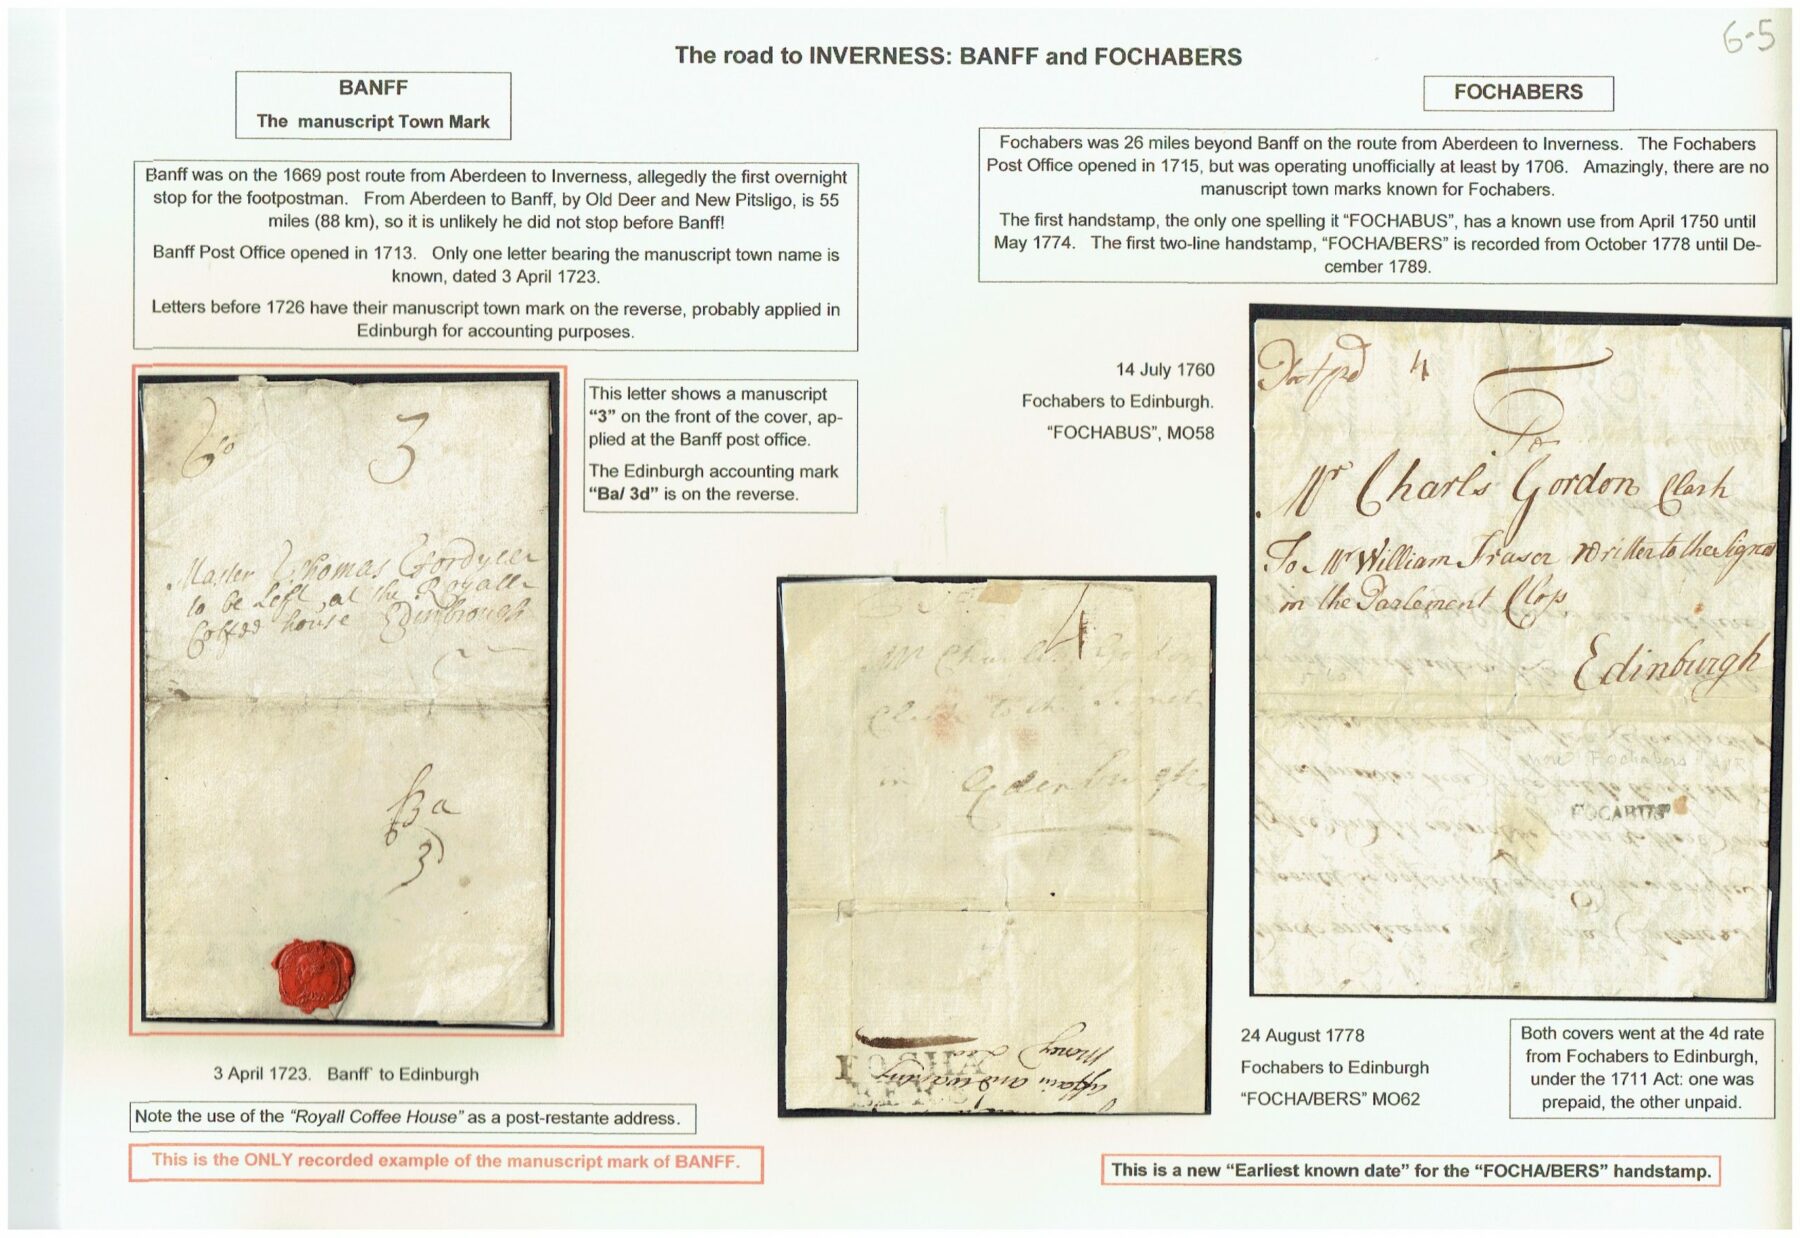 6-5
The road to INVERNESS: BANFF and FOCHABERS
BANFF
The manuscript Town Mark
Banff was on the 1669 post route from Aberdeen to Inverness, allegedly the first overnight
stop for the footpostman. From Aberdeen to Banff, by Old Deer and New Pitsligo, is 55
miles (88 km), so it is unlikely he did not stop before Banff!
Banff Post Office opened in 1713. Only one letter bearing the manuscript town name is
known, dated 3 April 1723.
Letters before 1726 have their manuscript town mark on the reverse, probably applied in
Edinburgh for accounting purposes.
This letter shows a manuscript
“3” on the front of the cover, ap-
plied at the Banff post office.
The Edinburgh accounting mark
“Ba/ 3d” is on the reverse.
3
Master Thomas
to be Left at the Royall
Coffee house Edinbrough
Ba
3d
3 April 1723. Banff to Edinburgh
Note the use of the “Royall Coffee House” as a post-restante address.
This is the ONLY recorded example of the manuscript mark of BANFF.
FOCHABERS
Fochabers was 26 miles beyond Banff on the route from Aberdeen to Inverness. The Fochabers
Post Office opened in 1715, but was operating unofficially at least by 1706. Amazingly, there are no
manuscript town marks known for Fochabers.
The first handstamp, the only one spelling it “FOCHABUS”, has a known use from April 1750 until
May 1774. The first two-line handstamp, “FOCHA/BERS” is recorded from October 1778 until De-
cember 1789.
14 July 1760
Fochabers to Edinburgh.
“FOCHABUS”, MO58
4
To
Mr Charls Gordon Clark
To Mr William Fraser Writter to the Signet
in the Parlement Clos
Edinburgh
4
Mr Charles Gordon
in Edinburgh
FOCHA
BERS
24 August 1778
Fochabers to Edinburgh
“FOCHA/BERS” MO62
Both covers went at the 4d rate
from Fochabers to Edinburgh,
under the 1711 Act: one was
prepaid, the other unpaid.
This is a new “Earliest known date” for the “FOCHA/BERS” handstamp.